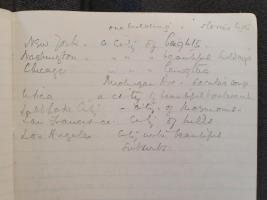 one building , stories high
New York - a city of heights
Washington - " " " beautiful buildings
Chicago " " " lengths
Michigan Ave -
Utica a city of beautiful
Salt Lake City - city of Mormons
San Francisco - City of hills
Los Angeles City with beautiful
suburbs.